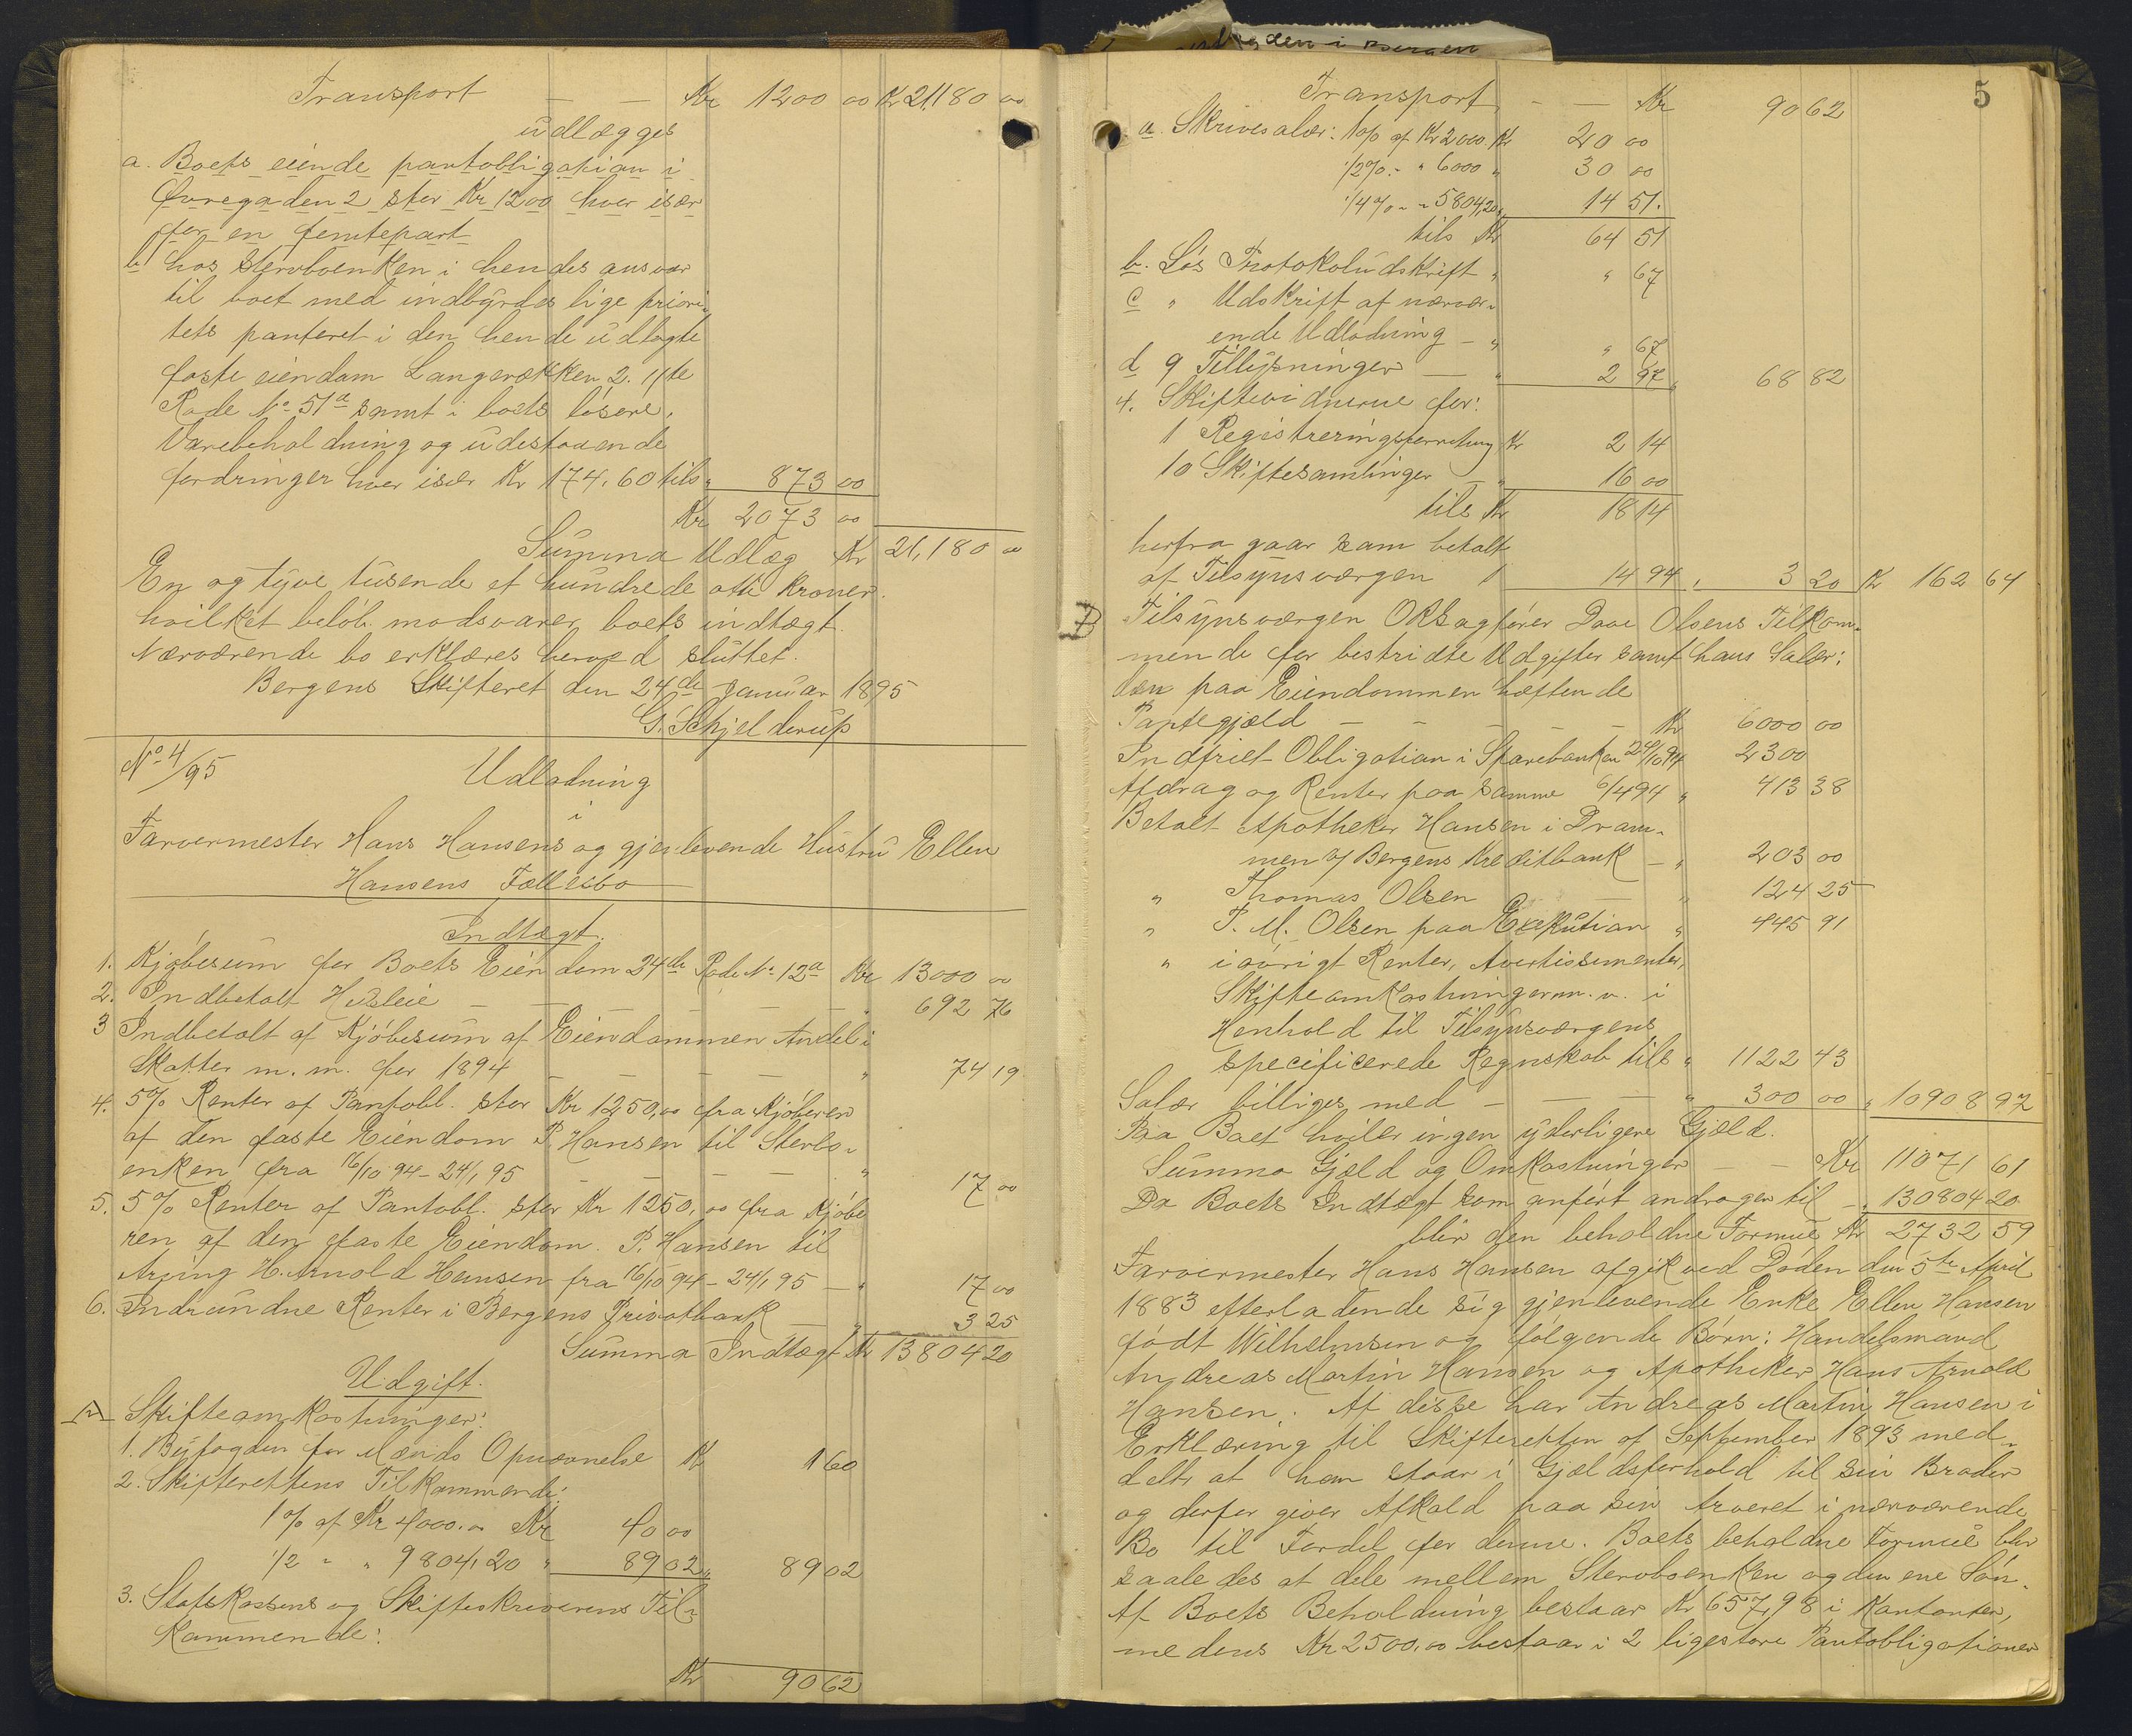 Transport — — Kr 1200 00 Kr 21,180 00
udlægges
a. Boets eiende pantobligation i
Øvregaden 2 stor Kr 1200 hver især
for en femtepart
b hos Stervboenken i hendes ansvar
til boet med indbyrdes lige priori-
tets panteret i den hende udlagte
faste eiendom Langerækken 2. 11te
Rode No 51a samt i boets løsøre,
Varebeholdning og udestaaende
fordringer hver især Kr 174.60 tils " 873 00
Kr 2073 00
Summa Udlæg Kr 21,180 00
En og tyve tusende et hundrede otti Kroner.
hvilket beløb modsvarer boets indtægt.
Nærværende bo erklæres herved sluttet.
Bergens Skifteret den 24de Januar 1895
G. Schjelderup
No 4/95
Udlodning
i
Farvermester Hans Hansens og gjenlevende Hustru Ellen
Hansens Fællesbo
Indtægt.
1. Kjøbesum for Boets Eiendom 24de Rode No 12a Kr 13000 00
2. Indbetalt Husleie — — — — " 692 76
3 Indbetalt af Kjøbesum af Eiendommen Andel i
Skatter m. m. for 1894 — — — — " 74 19
4. 5% Renter af Pantobl. stor Kr 1250,00 fra Kjøberen
af den faste Eiendom P. Hansen til Stervbo-
enken fra 16/10 94 - 24/1 95 — — — " 17 00
5. 5% Renter af Pantobl. stor Kr 1250,00 fra Kjøbe
ren af den faste Eiendom. P. Hansen til
Arving H. Arnold Hansen fra 16/10 94 - 24/1 95 — " 17 00
6. Indvundne Renter i Bergens Privatbank — " 3 25
Summa Indtægt Kr 13804 20
Udgift.
A Skifteomkostninger:
1. Byfogden for Mænds Opnævnelse Kr 1 60
2. Skifterettens Tilkommende:
1% af Kr 4000.00 Kr 40 00
1/2 " " 9804,20 " 89 02 " 89 02
3. Statskassens og Skifteskriverens Til-
kommende:
Kr 90 62
5
Transport - — Kr 90 62
a. Skrivesalær: 1% af Kr 2000. Kr 20 00
1/2% - " 6000 " 30 00
1/4% - " 5804,20 " 14 51.
tils Kr 64 51
b. Løs Protokoludskrift " " 67
c " Udskrift af nærvær-
ende Udlodning — " " 67
d 9 Tillysninger — " 2 97 " 68 82
4. Skiftevidnerne for:
1 Registreringsforretning Kr 2 14
10 Skiftesamlinger — " 16 00
tils Kr 18 14
herfra gaar som betalt
af Tilsynsværgen 14 94 " 3 20 Kr 162 64
B Tilsynsværgen ORSagfører Dave Olsens Tilkom-
mende for bestridte Udgifter samt hans Salær:
den paa Eiendommen hæftende
Pantegjæld — — — — Kr 6000 00
Indfriet Obligation i Sparebanken 29/10 94 2300
Afdrag og Renter paa samme 6/4 94 " 413 38
Betalt Apotheker Hansen i Dram-
men af Bergens Kreditbank — " 203 00
" Thomas Olsen — " 124 25
" P. M. Olsen paa Exekution " 445 91
" iøvrigt Renter, Avertissementer,
Skifteomkostninger m. v. i
Henhold til Tilsynsværgens
specificerede Regnskab tils " 1122 43
Salær billiges med — — — " 300 00 " 10908 97
Paa Boet hviler ingen yderligere Gjæld.
Summa Gjæld og Omkostninger — — Kr 11071 61
Da Boets Indtægt som anført andrager til — " 130804 20
blir den beholdne Formue Kr 2732 59
Farvermester Hans Hansen afgik ved Døden den 5te April
1883 efterladende sig gjenlevende Enke Ellen Hansen
født Wilhelmsen og følgende Børn: Handelsmand
Andreas Martin Hansen og Apotheker Hans Arnold
Hansen. Af disse har Andreas Martin Hansen i
Erklæring til Skifteretten af September 1893 med-
delt, at han staar i Gjældsforhold til sin Broder
og derfor giver Afkald paa sin Arveret i nærværende
Bo til Fordel for denne. Boets beholdne Formue blir
saaledes at dele mellem Stervboenken og den ene Søn.
Af Boets Beholdning bestaar Kr 657,98 i Kontanter,
medens Kr 2500.00 bestaar i 2 ligestore Pantobligationer